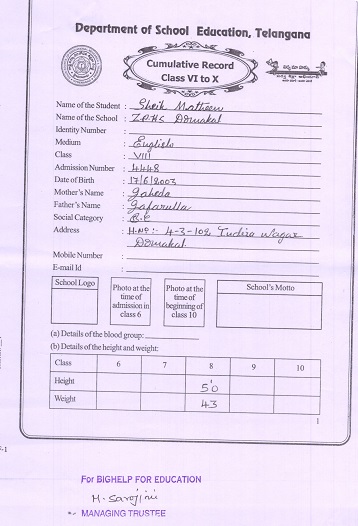 Department of School Education, Telangana
Cumulative Record
Class VI to X
Name of the Student : Sheik Matheen
Name of the School : Z.P.H.S Dornakal
Identity Number :
Medium : English
Class : VIII
Admission Number : 4448
Date of Birth : 17/6/2003
Mother's Name : Jaheda
Father's Name : Gafarulla
Social Category : B.C
Address : H.No:- 4-3-102,
Dornakal
Mobile Number :
E-mail Id :
School Logo Photo at the time of admission in class 6 Photo at the time of beginning of class 10 School's Motto
(a) Details of the blood group:
(b) Details of the height and weight:
Class 6 7 8 9 10
Height 50
Weight 43
1
For BIGHELP FOR EDUCATION
H. Sarojini
MANAGING TRUSTEE